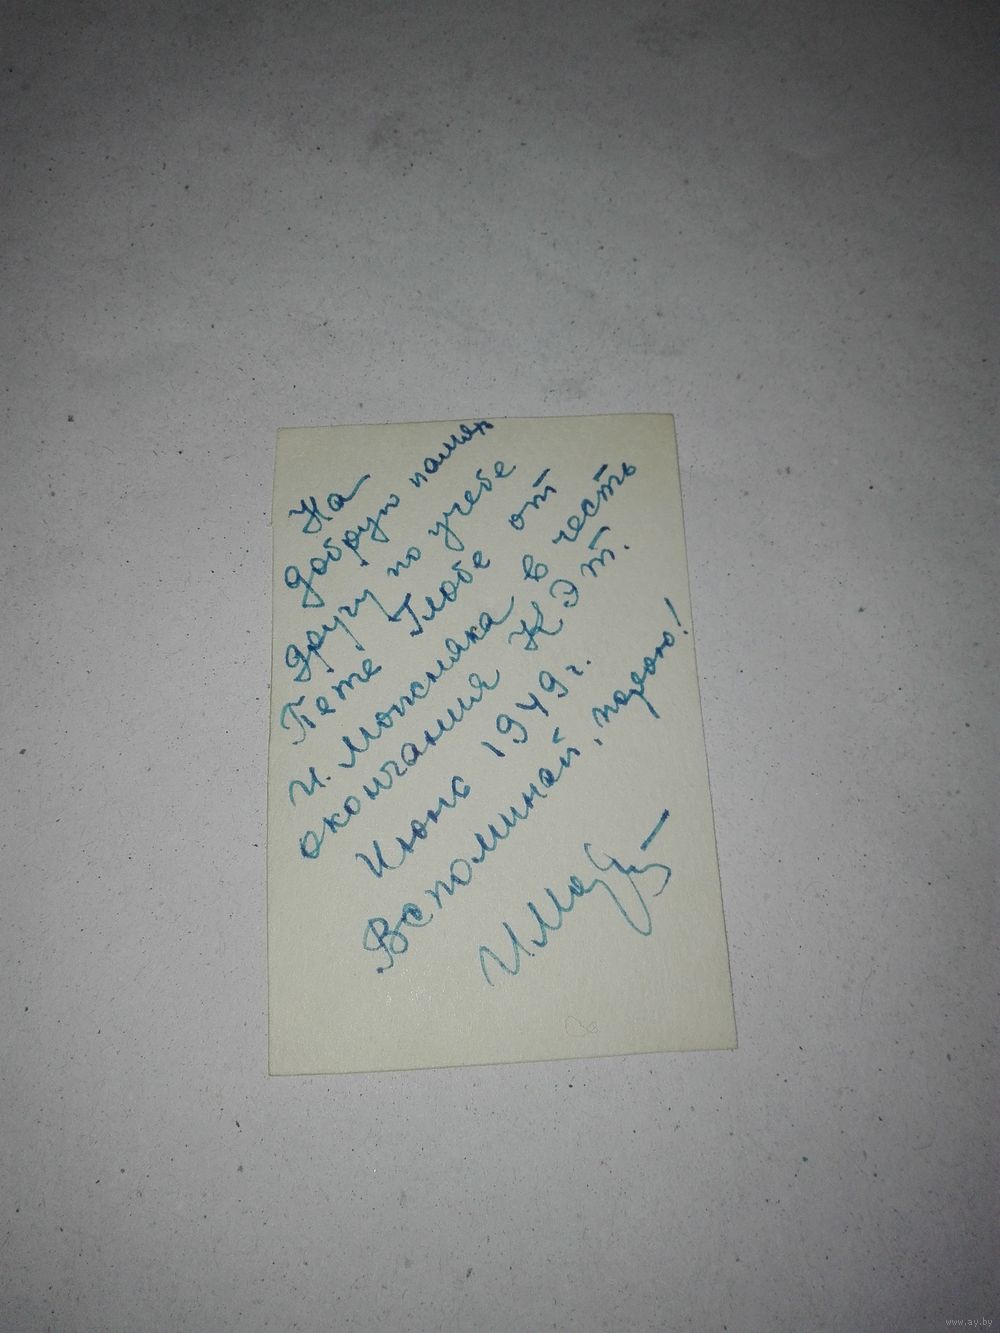 На
добрую память
другу по учебе
Пете Глобе от
И. Можсняка в честь
окончания КЭТ.
Июнь 1949 г.
Вспоминай, порою!
И.
www.ay.by